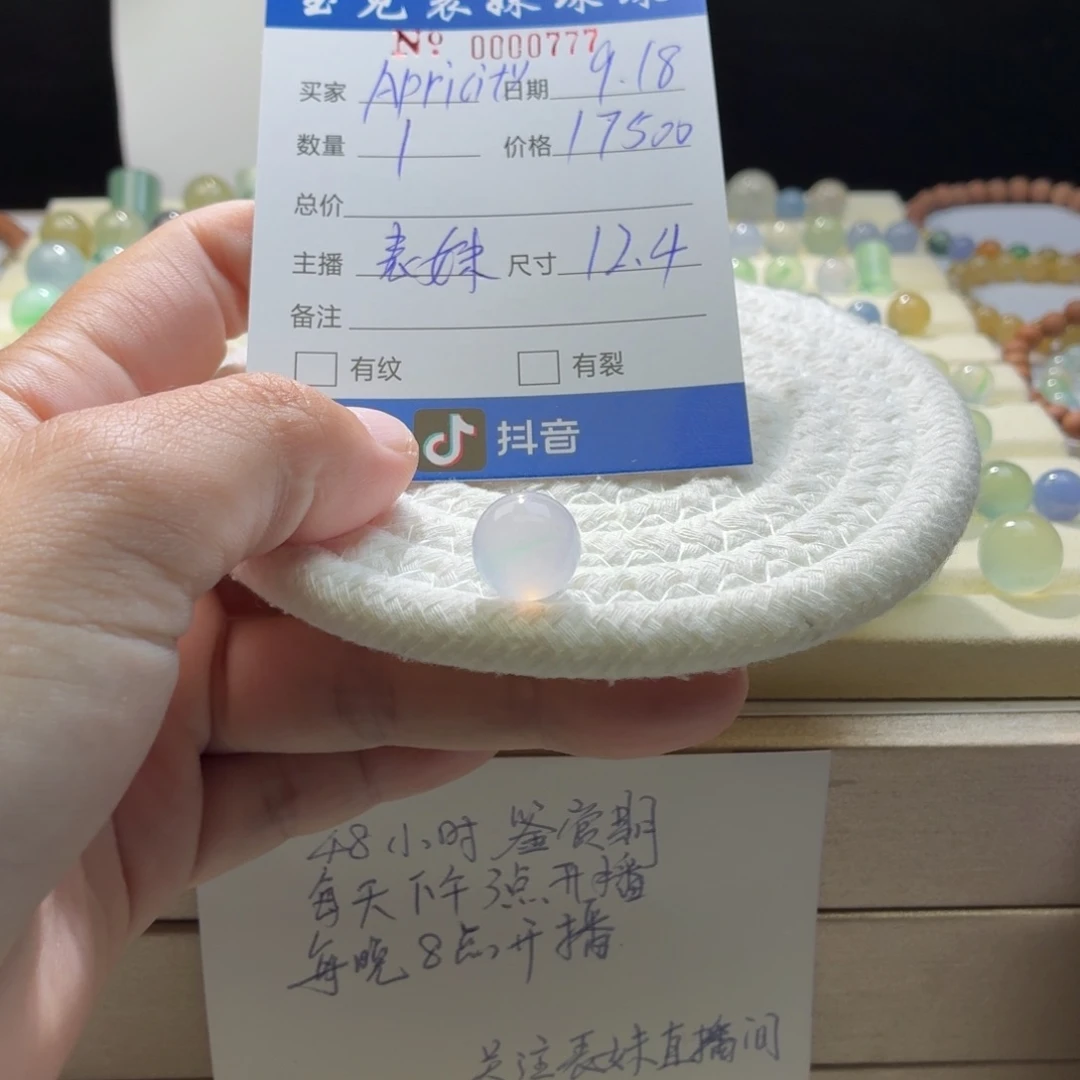 № 0000777
买家 Apricity 日期 9.18
数量 1 价格 17500
总价
主播 表妹 尺寸 12.4
备注
有纹 有裂
抖音
48小时鉴赏期
每天下午3点开播
每晚8点开播
关注表妹直播间